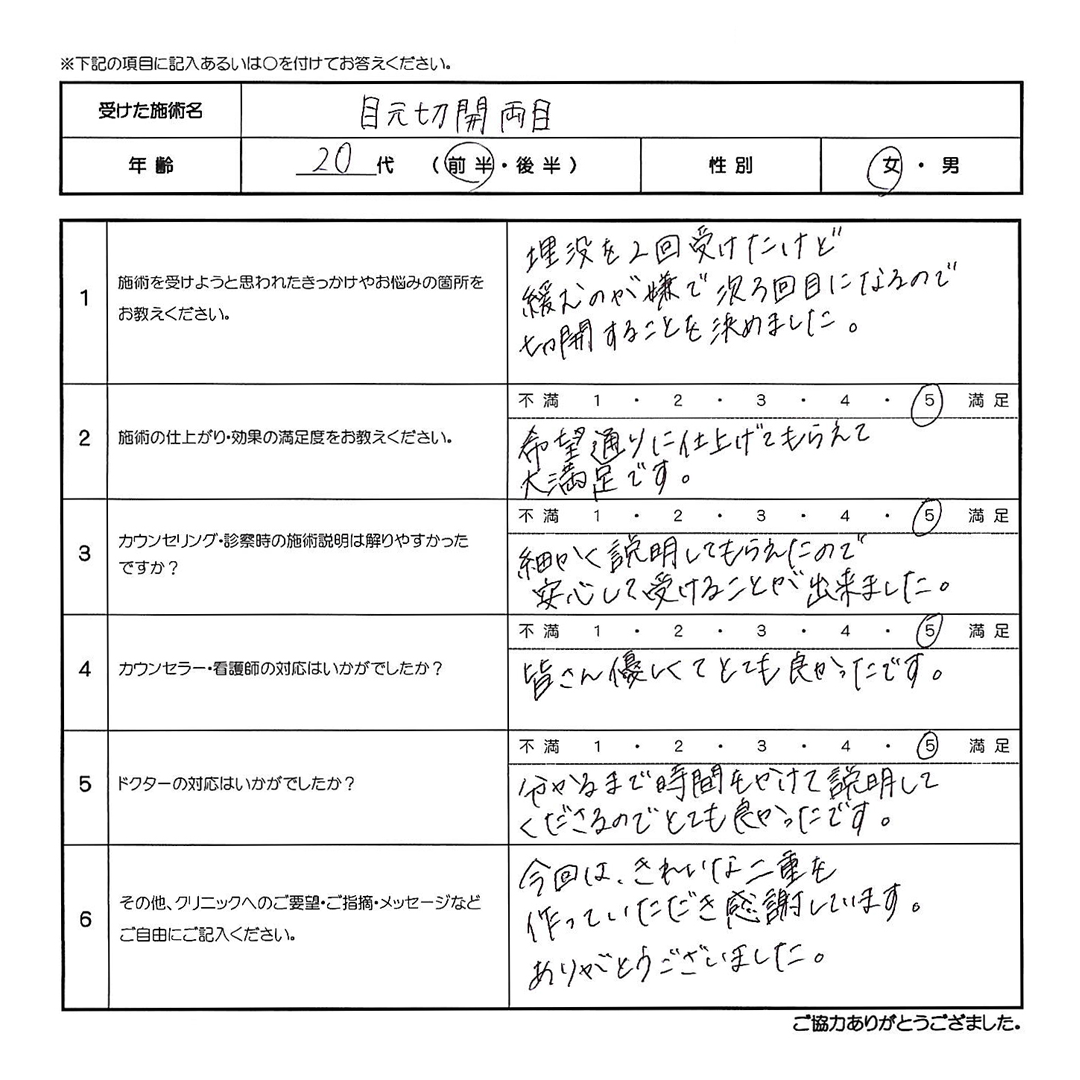 ※下記の項目に記入あるいは○を付けてお答えください。
受けた施術名 目元切開 両目
年齢 20代 (前半・後半) 性別 女・男
1 施術を受けようと思われたきっかけやお悩みの箇所をお教えください。
埋没を2回受けたけど
緩むのが嫌で次3回目になるので
切開することを決めました。
2 施術の仕上がり・効果の満足度をお教えください。
不満 1 ・ 2 ・ 3 ・ 4 ・ 5 満足
希望通りに仕上げてもらえて
大満足です。
3 カウンセリング・診察時の施術説明は解りやすかったですか？
不満 1 ・ 2 ・ 3 ・ 4 ・ 5 満足
細かく説明してもらえたので
安心して受けることが出来ました。
4 カウンセラー・看護師の対応はいかがでしたか？
不満 1 ・ 2 ・ 3 ・ 4 ・ 5 満足
皆さん優しくてとても良かったです。
5 ドクターの対応はいかがでしたか？
不満 1 ・ 2 ・ 3 ・ 4 ・ 5 満足
分かるまで時間をかけて説明して
くださるのでとても良かったです。
6 その他、クリニックへのご要望・ご指摘・メッセージなどご自由にご記入ください。
今回は、きれいな二重を
作っていただき感謝しています。
ありがとうございました。
ご協力ありがとうござました。